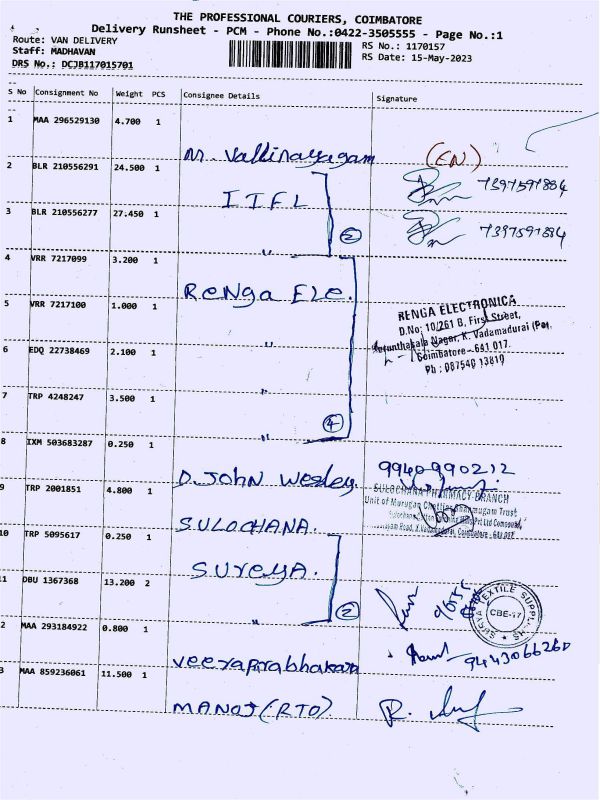 THE PROFESSIONAL COURIERS, COIMBATORE
Delivery Runsheet - PCM - Phone No.:0422-3505555 - Page No.:1
Route: VAN DELIVERY
RS No.: 1170157
Staff: MADHAVAN
RS Date: 15-May-2023
DRS No.: DCJB117015701
S No Consignment No Weight PCS Consignee Details Signature
1 MAA 296529130 4.700 1
M. Vallinayagam (EN)
2 BLR 210556291 24.500 1
ITFL 7397597884
3 BLR 210556277 27.450 1
" 2 7397597884
4 VRR 7217099 3.200 1
Renga Ele.
RENGA ELECTRONICA
D.No: 10/261 B, First Street,
Nagar, K. Vadamadurai (Po),
Coimbatore - 641 017.
Ph : 087540 13810
5 VRR 7217100 1.000 1
"
6 EDQ 22738469 2.100 1
"
7 TRP 4248247 3.500 1
" 4
8 IXM 503683287 0.250 1
D. John Wesley. 9940990212
9 TRP 2001851 4.800 1
SULOCHANA.
SULOCHANA PHARMACY BRANCH
Unit of Murugan Chettiar Shanmugam Trust
10 TRP 5095617 0.250 1
Sureya.
11 DBU 1367368 13.200 2
" 2
SURYA TEXTILE SUPPLIERS
CBE-17
2 MAA 293184922 0.800 1
Veeraprabhakaran 9443066260
3 MAA 859236061 11.500 1
MANOJ (RTO). R.